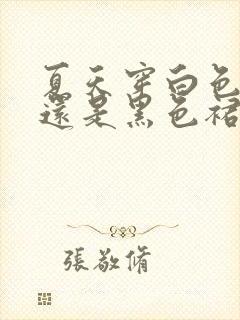 夏天穿白色
還是黑色裙
張敬脩